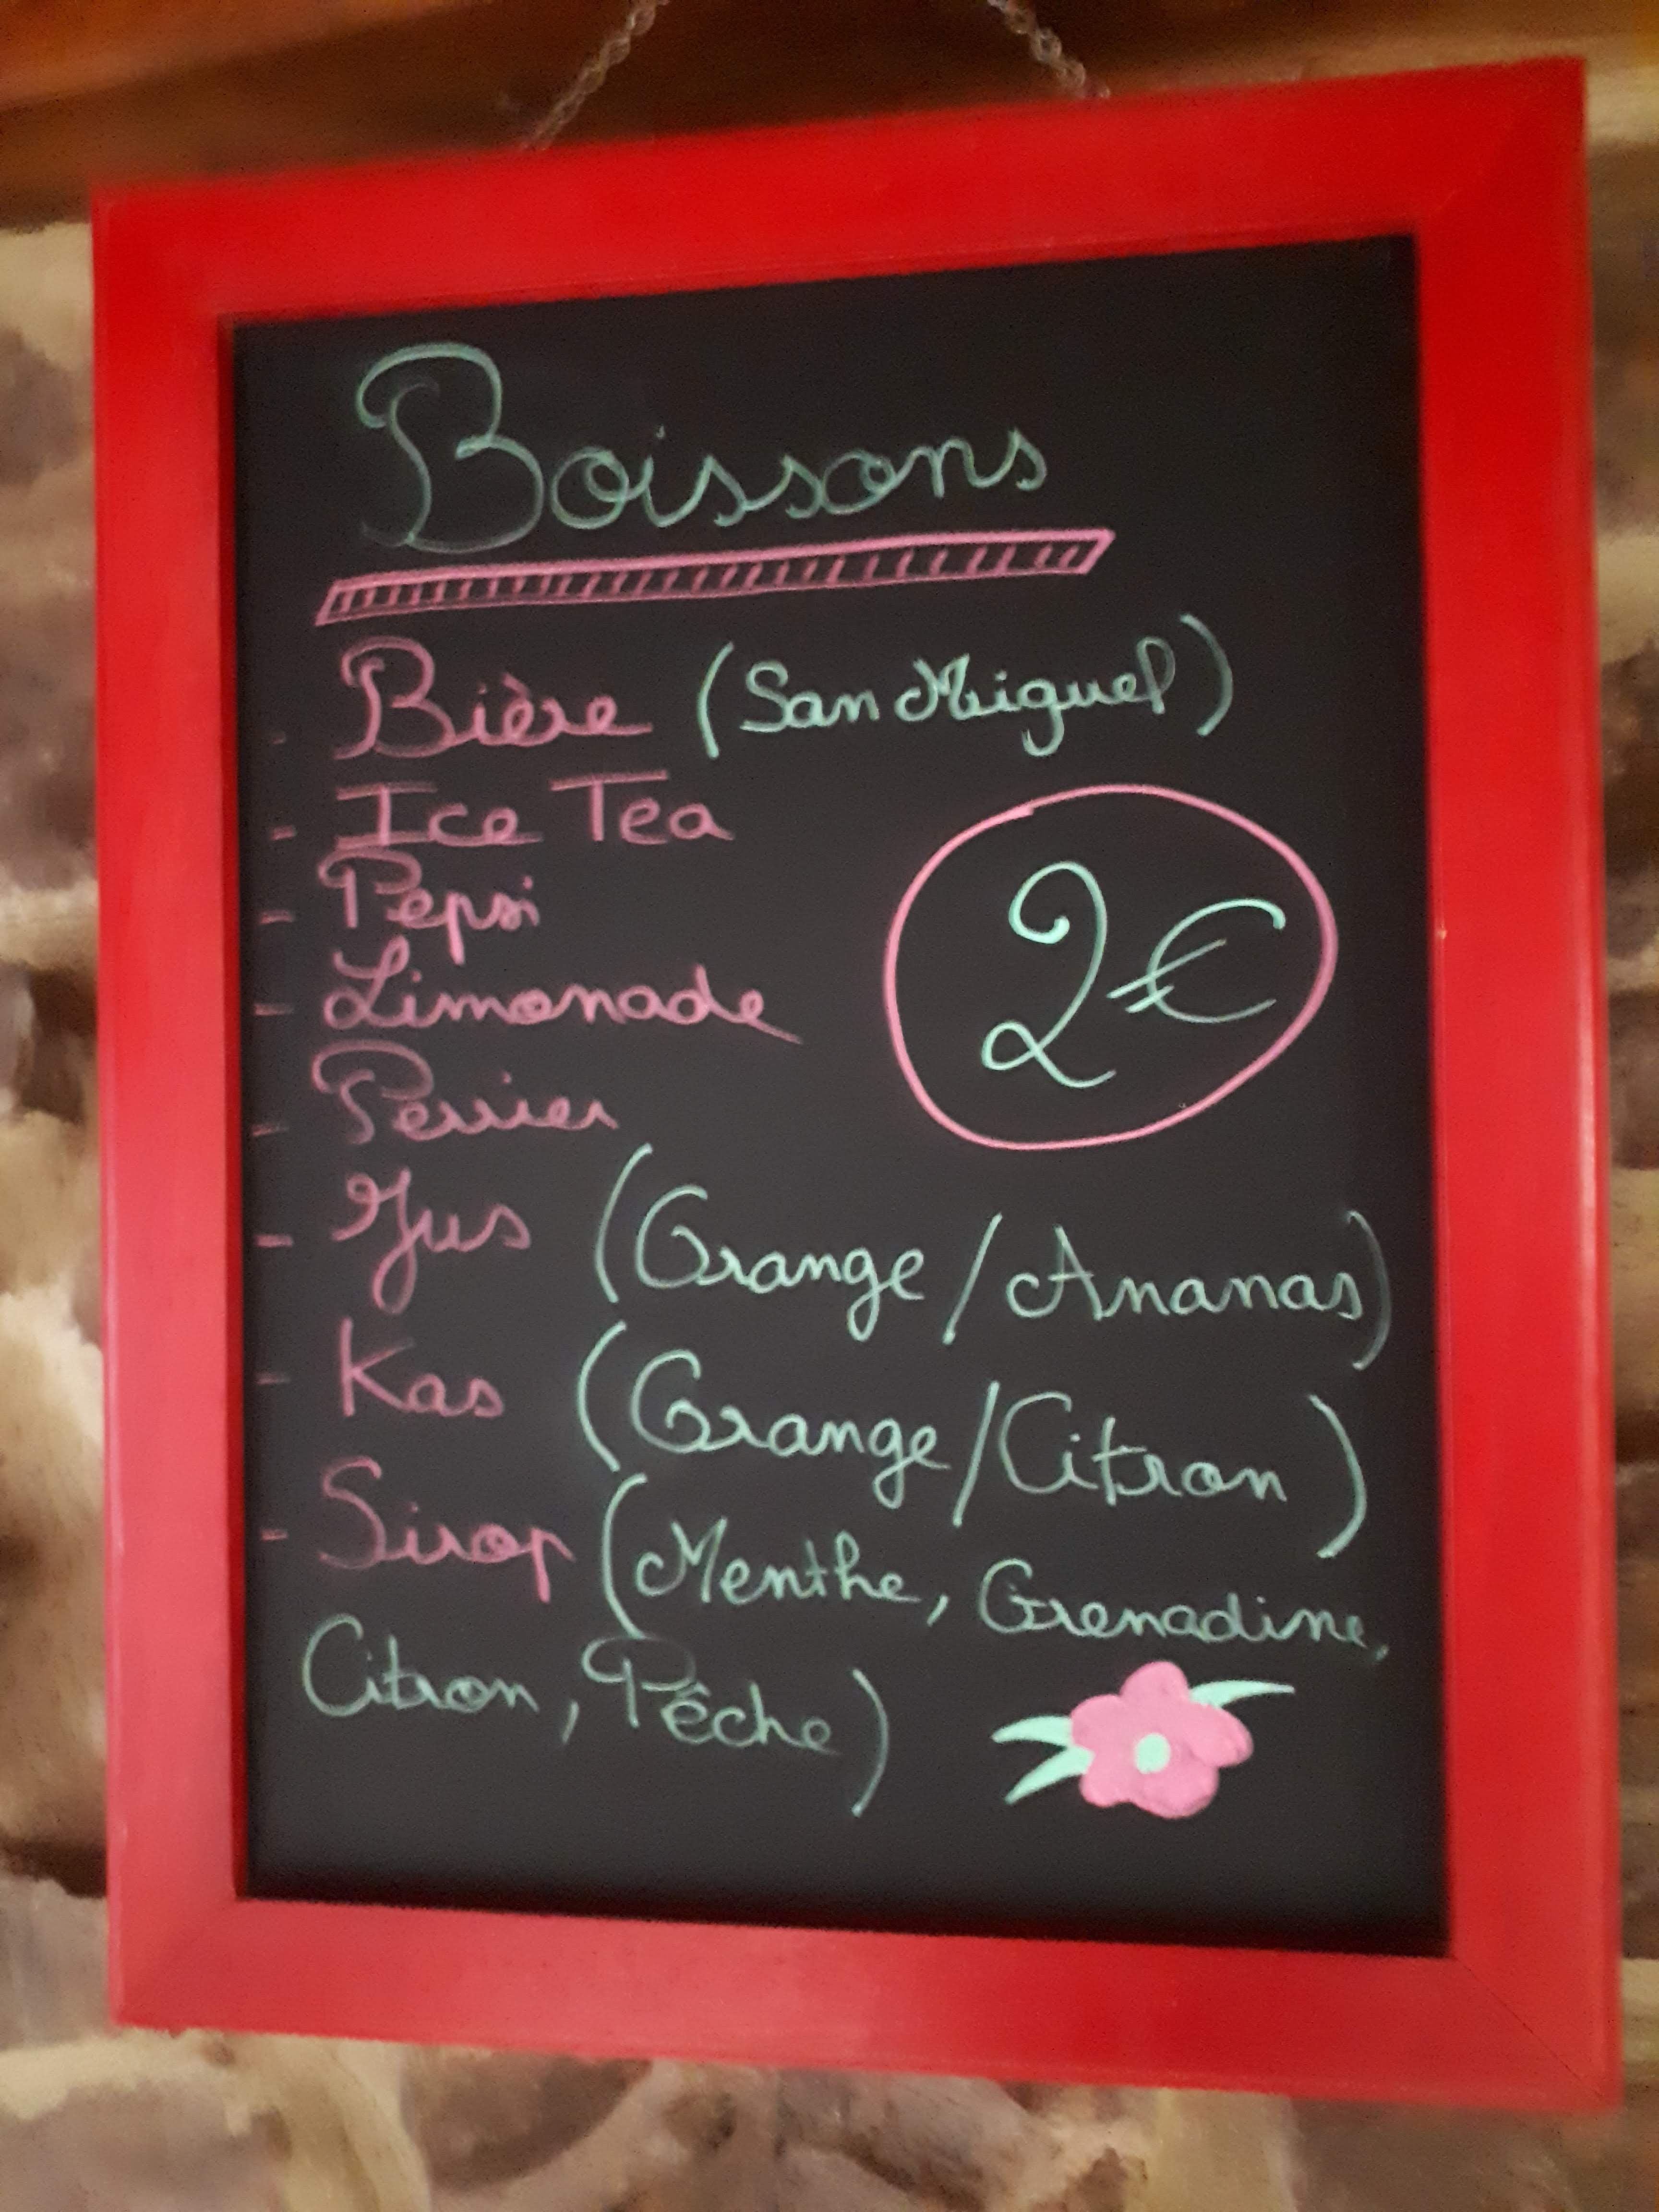 Boissons
- Bière (San Miguel)
- Ice Tea
- Pepsi
- Limonade
2€
- Perrier
- Jus (Orange/Ananas)
- Kas (Orange/Citron)
- Sirop (Menthe, Grenadine,
Citron, Pêche)